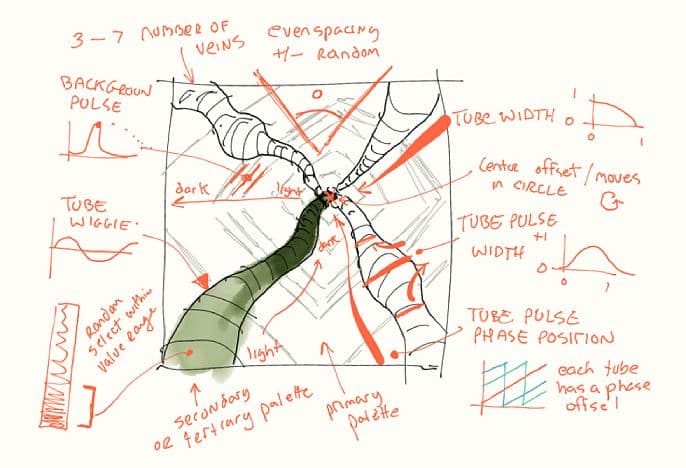 3 - 7 NUMBER OF
VEINS
EVEN SPACING
+/- RANDOM
O
BACKGROUN
PULSE
TUBE WIDTH
1
0
0
1
dark
light
CENTER OFFSET / MOVES
IN CIRCLE
TUBE
WIGGLE
dark
TUBE PULSE
WIDTH
+1
0
0
1
Random
select within
value range
TUBE PULSE
PHASE POSITION
light
each tube
has a phase
offset
secondary
OR tertiary palette
primary
palette